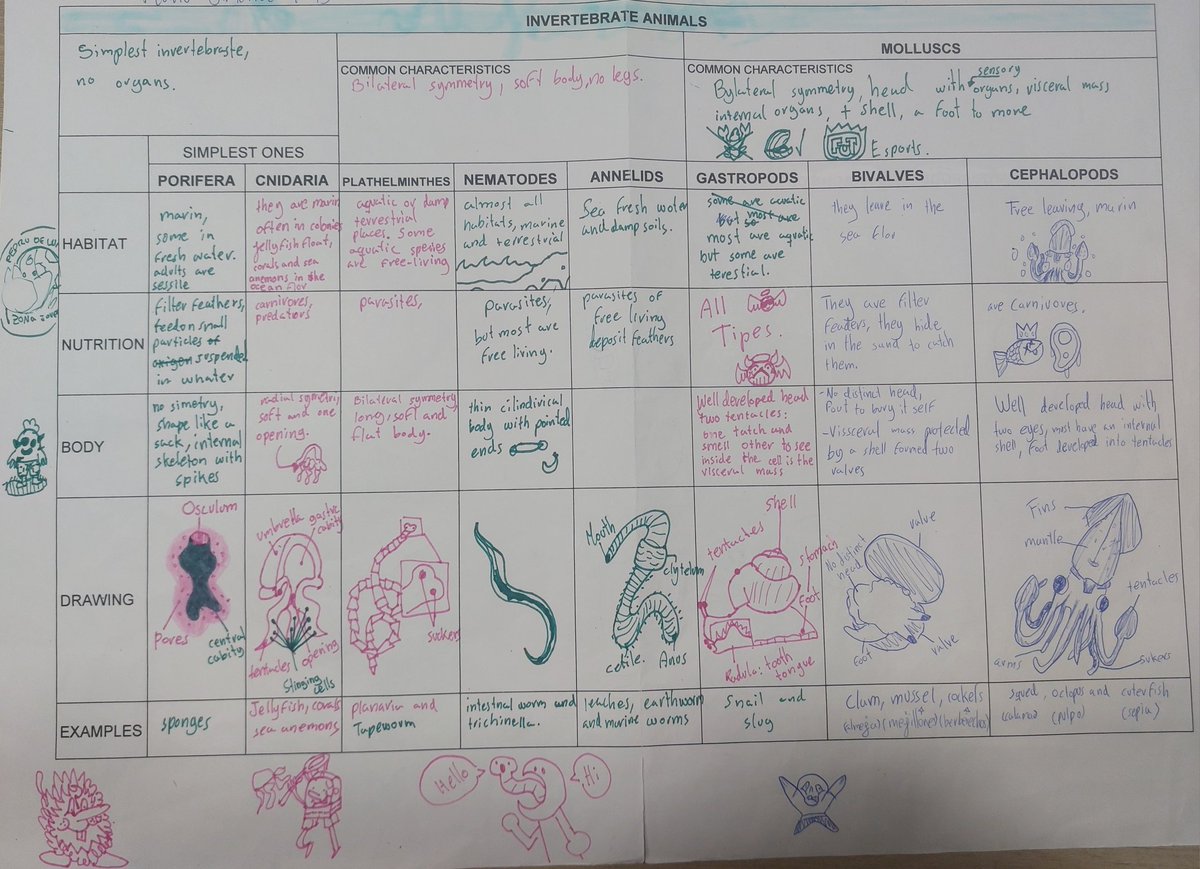 INVERTEBRATE ANIMALS
Simplest invertebraste,
no organs.
COMMON CHARACTERISTICS
Bilateral symmetry, soft body, no legs.
MOLLUSCS
COMMON CHARACTERISTICS
sensory
Bylateral symmetry, head with organs, visceral mass
internal organs, + shell, a foot to move
Esports.
SIMPLEST ONES
PORIFERA
CNIDARIA
PLATHELMINTHES
NEMATODES
ANNELIDS
GASTROPODS
BIVALVES
CEPHALOPODS
HABITAT
marin,
some in
fresh water.
adults are
sessile
they are marin
often in colonies
Jellyfish float,
corals and sea
anemons in the
ocean flor
aquatic or damp
terrestrial
places. Some
aquatic species
are free-living
almost all
habitats, marine
and terrestrial
Sea fresh water
and damp soils.
some are aquatic
most are
most are aquatic
but some are
terestial.
they leave in the
sea flor
Free leaving, marin
PEDRO DE
ZONA
NUTRITION
Filter feathers,
feed on small
particles of
oxigen suspended
in whater
carnivores,
predators
parasites,
parasites,
but most are
free living.
parasites of
free living
deposit feathers
All
Tipes.
They are filter
feaders, they hide
in the sand to catch
them.
are Carnivores.
BODY
no simetry,
shape like a
sack, internal
skeleton with
spikes
radial symetry,
soft and one
opening.
Bilateral symmetry
long, soft and
flat body.
thin cilindirical
body with pointed
ends
Well developed head
two tentacles:
one tatch and
smell other to see
inside the cell is the
visceral mass
-No distinct head,
Foot to bury it self
-Vissceral mass protected
by a shell formed two
valves
Well developed head with
two eyes, most have an internal
shell, foot developed into tentacles
DRAWING
Osculum
Pores
central
cabity
umbrella
gastric
cabity
tentacles
opening
Stinging
cells
suckers
Mouth
clytelum
Anos
tentaches
shell
stomach
foot
Radula: tooth
tongue
No distinct
head
valve
foot
valve
Fins
mantle
tentacles
arms
sukers
EXAMPLES
sponges
Jellyfish, corals
sea anemons
planaria and
Tapeworm
intestinal worm and
trichinella.
leaches, earthworm
and marine worms
Snail and
slug
Clam, mussel, cockels
(almejas) (mejillones) (berberechos)
squid, octopus and cuterfish
(calamar) (pulpo) (sepia)
Hello
Hi